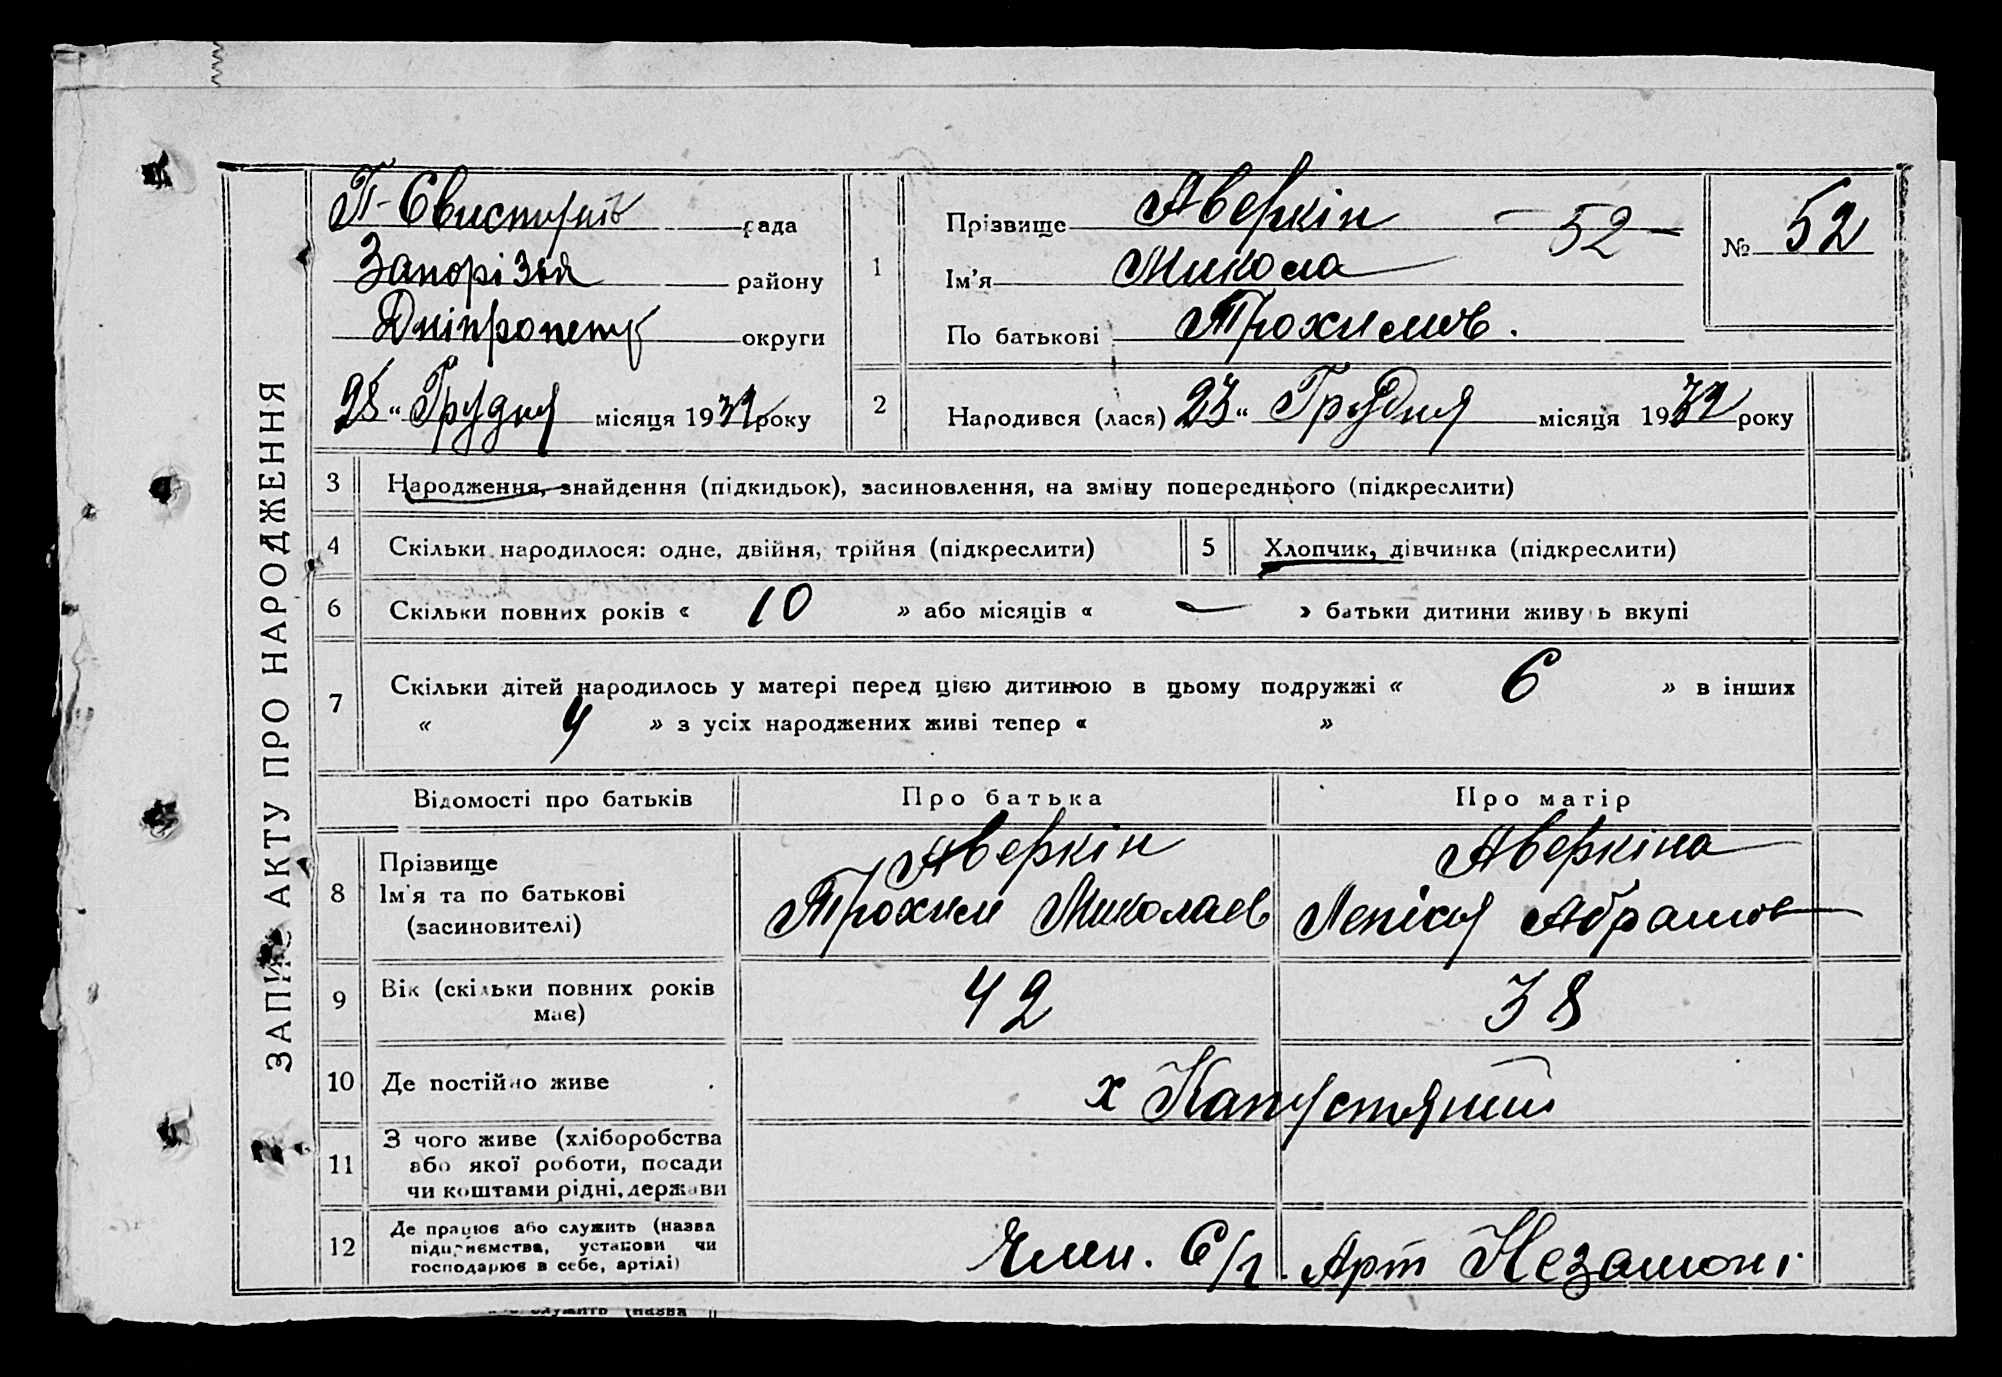 ЗАПИС АКТУ ПРО НАРОДЖЕННЯ
П-Свистунів рада
Запоріззя району
Дніпропетр округи
28 " Грудня місяця 1932 року
1
Прізвище Аверкін — 52 —
Ім'я Микола
По батькові Трохимов.
№ 52
2
Народився (лася) 23 " Грудня місяця 1932 року
3 Народження, знайдення (підкидьок), засиновлення, на зміну попереднього (підкреслити)
4 Скільки народилося: одне, двійня, трійня (підкреслити)
5 Хлопчик, дівчинка (підкреслити)
6 Скільки повних років « 10 » або місяців « — » батьки дитини живу ь вкупі
7 Скільки дітей народилось у матері перед цією дитиною в цьому подружжі « 6 » в інших
« 4 » з усіх народжених живі тепер « »
Відомості про батьків Про батька Про матір
8
Прізвище Аверкін Аверкіна
Ім'я та по батькові Трохим Миколаєв Абрамов
(засиновителі)
9 Вік (скільки повних років 42 38
має)
10 Де постійно живе х Капустяний
11 З чого живе (хліборобства
або якої роботи, посади
чи коштами рідні, держави
12 Де працює або служить (назва
підприємства, установи чи
господарює в себе, артілі) Член. С/г. Арт Незаможі
служить (назва